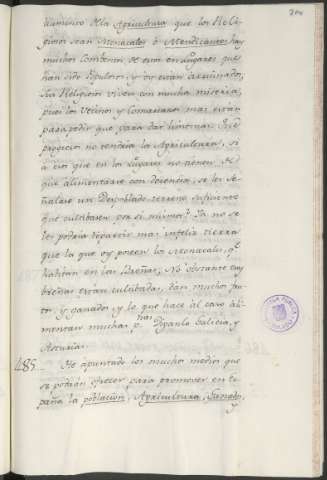 damento de la Agricultura que los Reli
giosos sean Monacales ò Mendicantes, hay
muchos Combentos de estos en Lugares que
han sido Populosos, y oy están arruinados,
los Religiosos viven con mucha miseria,
pues los Vecinos y Comarcanos mas están
para pedir que para dar limosnas. Que
progresos no tendría la Agricultura, si
à los que en los Lugares no tienen
que alimentarse con decencia, se les se
ñalare un Despoblado terreno suficiente
que cultibasen por si mismos? Ya no se
les podria repartir mas infeliz tierra
que la que oy poseen los Monacales, q.e
habitan en las Breñas, No obstante tres
breñas están cultibadas, dan mucho fru
to, y ganados y lo que hace al caso ali
mentan muchas p.nas Diganlo Galicia, y
Asturias.
485 He apuntado los muchos medios que
se podrán ofrecer para promover en Es
paña la poblacion, Agricultura, Fomento,